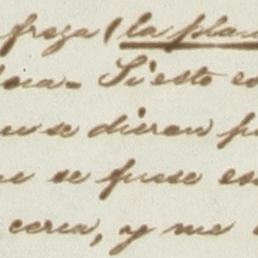 froza (la plan
Si esto es
se dieron p
se fuese es
cerca, y me